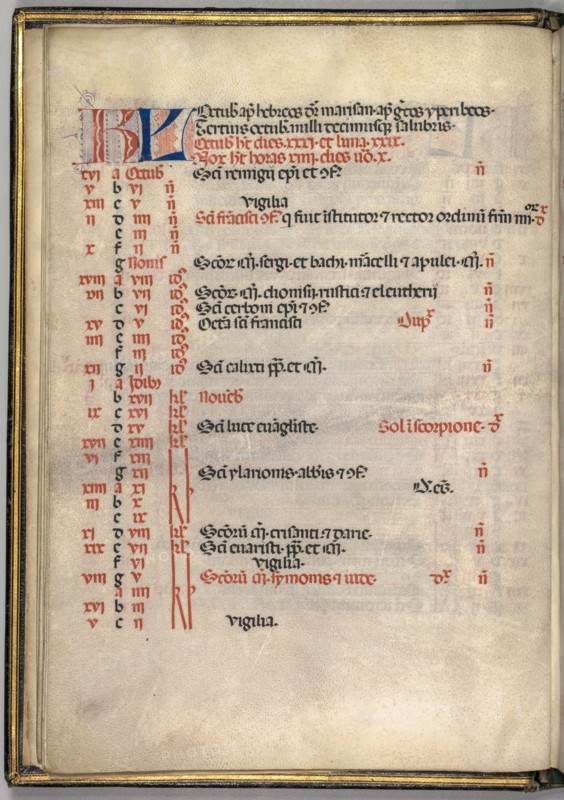 KL Octub ap hebreos dr marisan ap grecos yperibeos
Tertius octub milli decimusq salubris
Octub ht dies xxxi et luna xxix
Nox ht horas xiiii dies uo x
xvi a Octub Sci remigii epi et 9f n
v b vi n
xiii c v n vigilia
ii d iiii n Sci francisci 9f q fuit istitutor 7 rector ordinu frm
e iii n
x f ii n
g Nonis Scor m sergi et bachi marcelli 7 apulei m n
xviii a viii id
vii b vii id Scor m dionisii rustici 7 eleutherij n
c vi id Sci cerboni epi 7 9f n
xv d v id Octa sci francisci Dup n
iiii e iiii id
f iii id
xii g ii id Sci calixti pp et m n
i a Idib
b xvii kl Noueb
ix c xvi kl
d xv kl Sci luce euagliste Sol i scorpione d
xvii e xiiii kl
vi f xiii
g xii Sci ylarionis abbis 7 9f n
xiiii a xi
iii b x
c ix
xi d viii kl Scoru m crisanti 7 darie n
xix e vii kl Sci euaristi pp et m n
f vi vigilia
viii g v Scoru m symonis 7 iude d n
a iiii
xvi b iii
v c ii vigilia